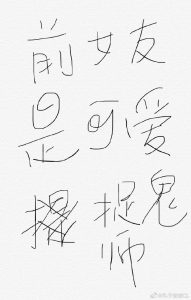 前女友
是可爱
捉鬼
师